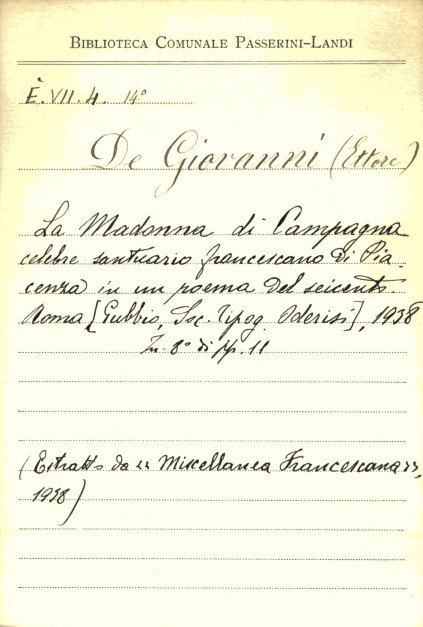 BIBLIOTECA COMUNALE PASSERINI-LANDI
È. VII. 4. 14°
De Giovanni (Ettore)
La Madonna di Campagna
celebre santuario francescano di Pia-
cenza in un poema del seicento.
Roma [Gubbio, Soc. Tipog. Oderisi], 1938
In-8° di pp. 11
(Estratto da "Miscellanea Francescana",
1938)